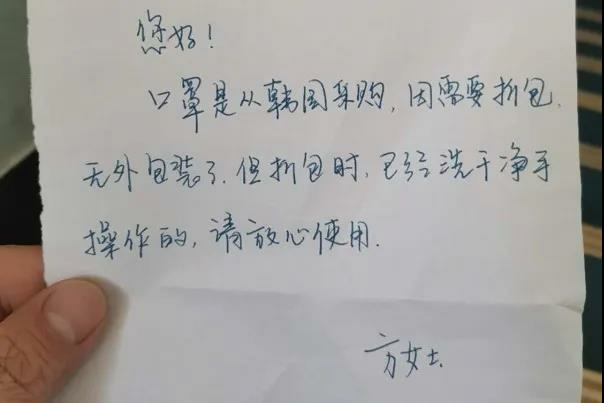 您好！
口罩是从韩国采购，因需要拆包，
无外包装了.但拆包时，已经洗干净手
操作的，请放心使用.
方女士.